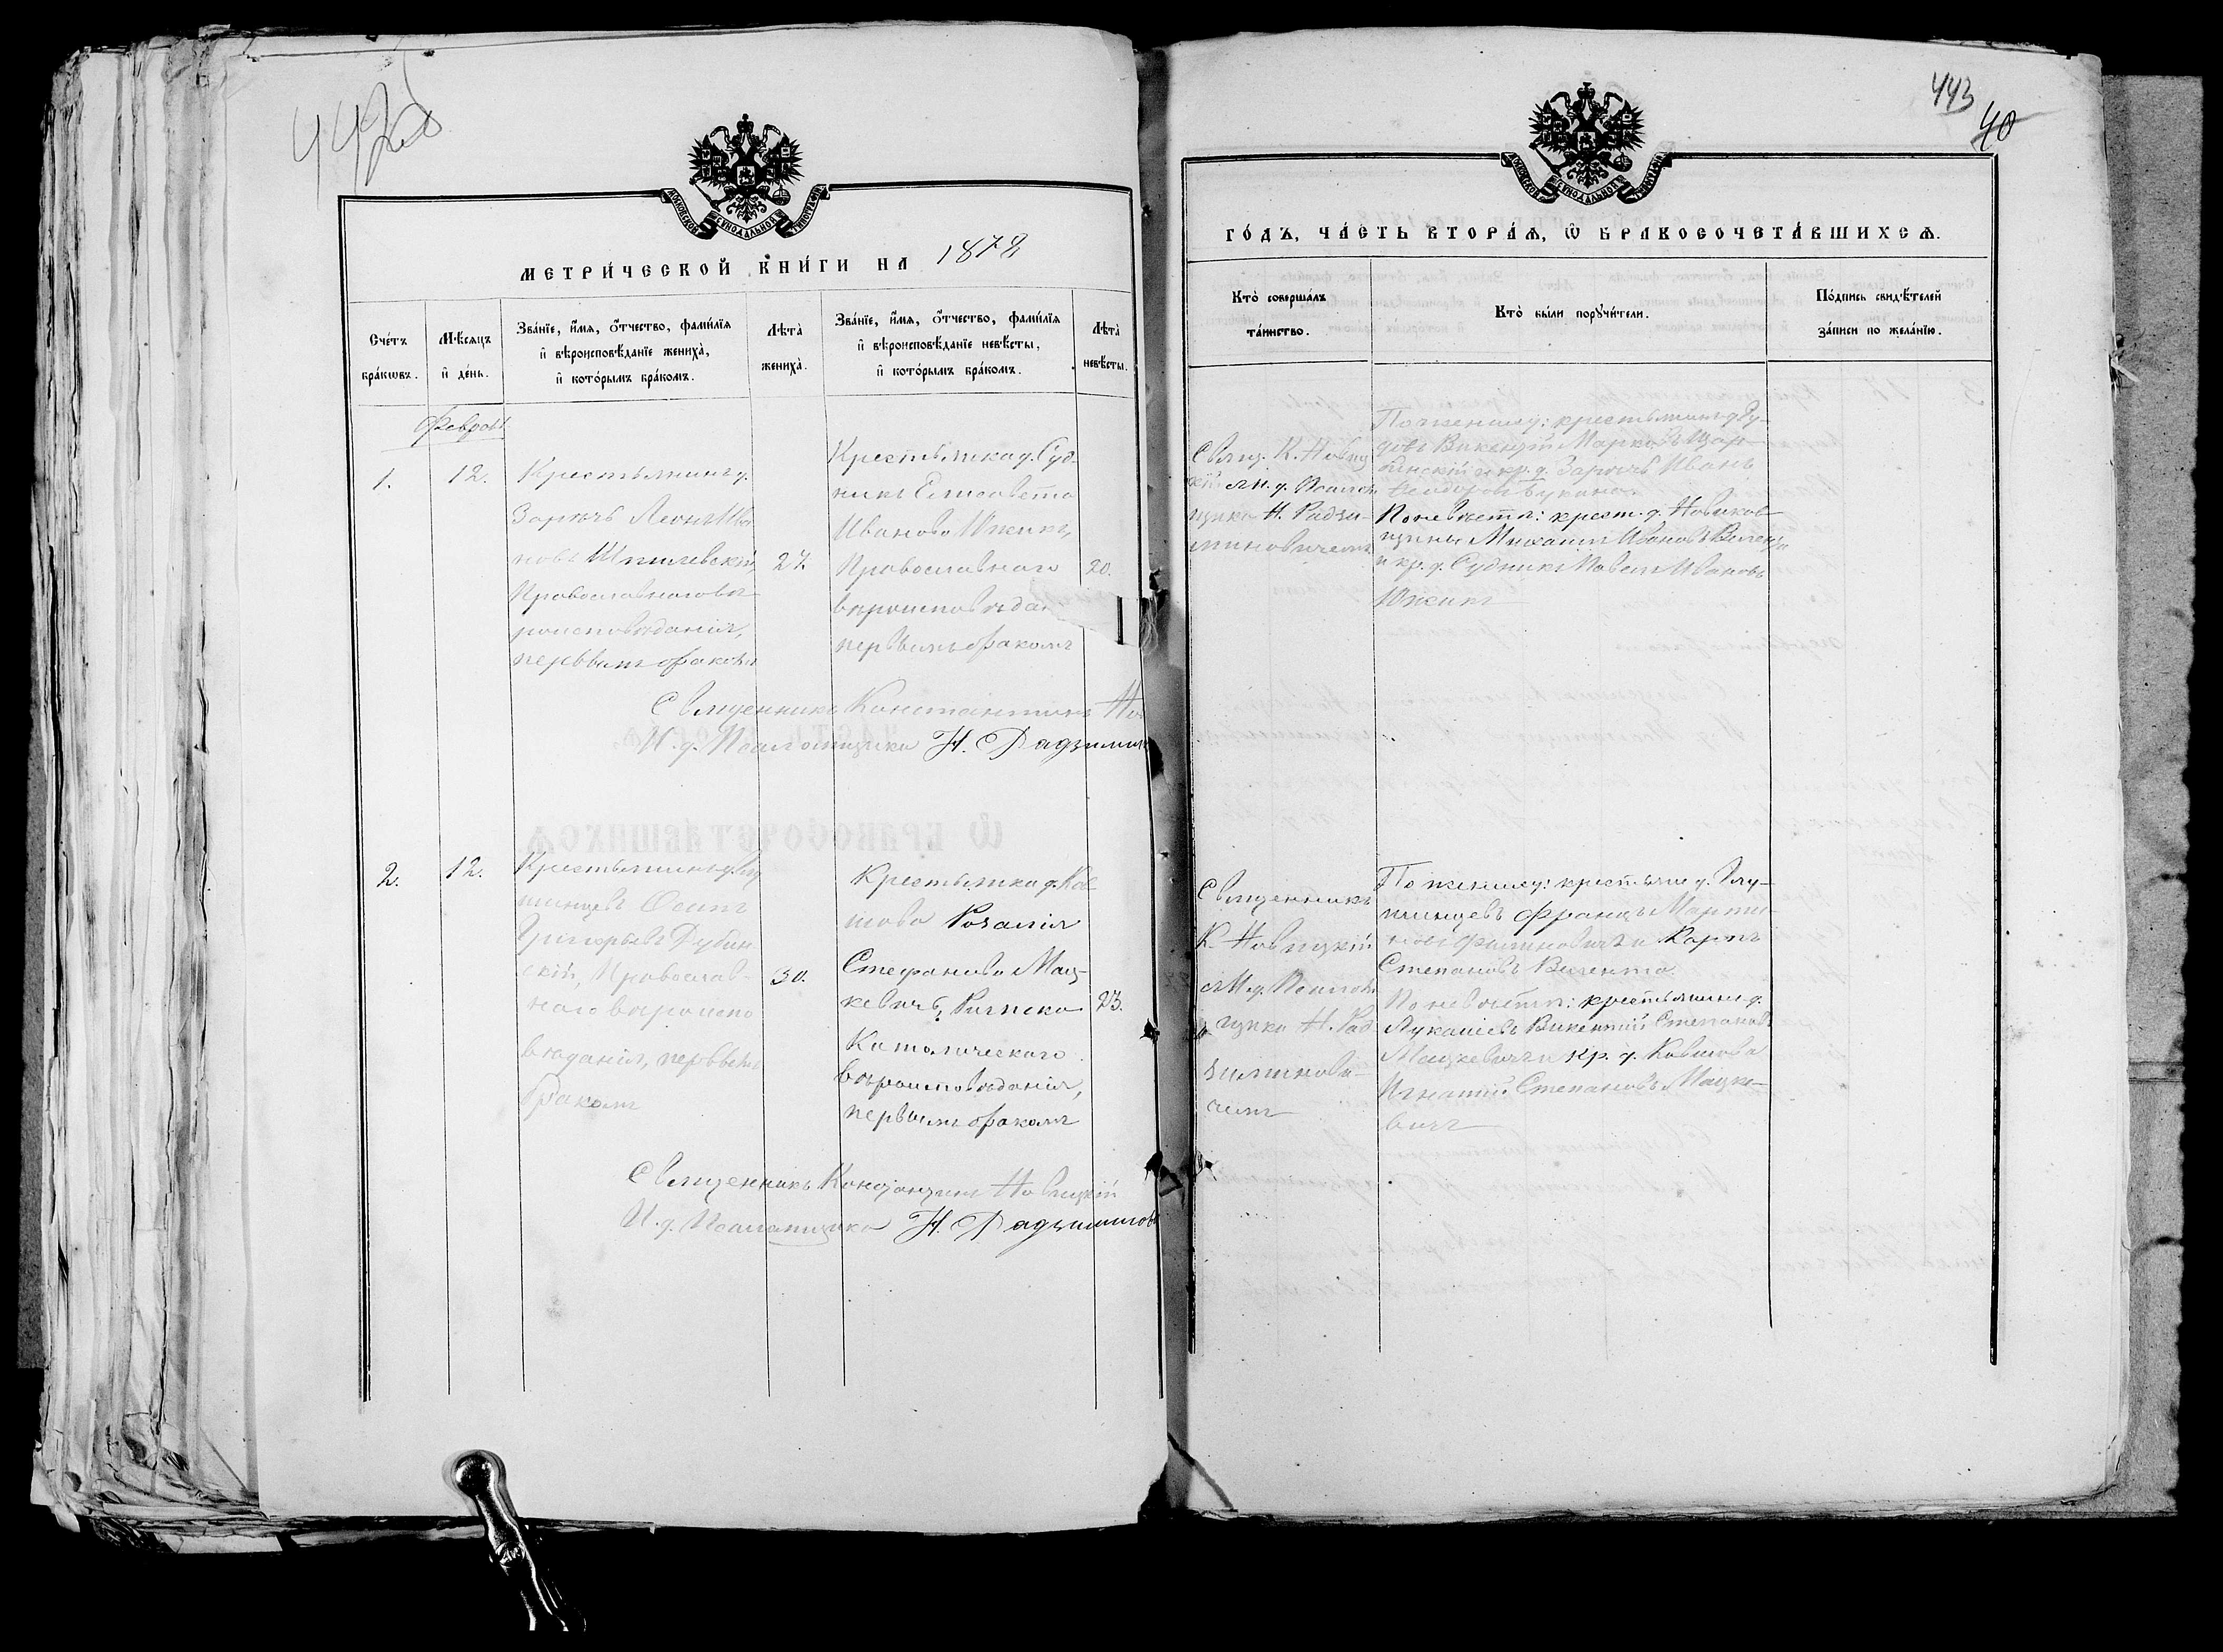 442об
МОСКОВСКОЙ СѴНОДАЛЬНОЙ ТИПОГРАФІИ
МЕТРИ́ЧЕСКОЙ КНИ́ГИ НА 1878
Сче́тъ бра́кѡвъ.
Мѣ́сяцъ и҆ де́нь.
Зва́нїе, и҆́мя, ѻ҆́тчество, фами́лїя и҆ вѣроисповѣ́данїе жениха̀, и҆ кото́рымъ бра́комъ.
Лѣта̀ жениха̀.
Зва́нїе, и҆́мя, ѻ҆́тчество, фами́лїя и҆ вѣроисповѣ́данїе невѣ́сты, и҆ кото́рымъ бра́комъ.
Лѣта̀ невѣ́сты.
Феврал
1.
12.
Крестьянинъ д.
Заречъ Леонъ Ива
новъ Шпилевскій,
Православнаго вѣ
роисповѣданія,
первымъ бракомъ
27.
Крестьянка д. Суд-
никъ Елисавета
Иванова Южикъ,
Православнаго
вѣроисповѣда
первымъ бракомъ
20.
Священникъ Константинъ Но
И. д. Псаломщика Н. Радзимин
2.
12.
Крестьянинъ д.
Осипъ
Григорьевъ Дубин
скій, Православ-
наго вѣроиспо
вѣданія, первымъ
бракомъ
30.
Крестьянка д. Ков
шово Розалія
Стефанова Мац-
кевичъ, Римско
Католическаго
вѣроисповѣданія,
первымъ бракомъ
23.
Священникъ Константинъ Новицкій
И. д. Псаломщика Н. Радзиминов
443
40
МОСКОВСКОЙ СѴНОДАЛЬНОЙ ТИПОГРАФІИ
ГО́ДЪ, ЧА́СТЬ ВТОРА́Я, Ѡ҆ БРАКОСОЧЕТА́ВШИХСЯ.
Кто̀ соверша́лъ та́инство.
Кто̀ бы́ли порꙋчи́тели.
По́дпись свидѣ́телей за́писи по жела́нїю.
Свящ. К. Новиц
кій и И. д. Псалом
щика Н. Радзи-
миновичемъ
По женихѣ: крестьянинъ д. Ру-
Викентій Марковъ
и кр. д. Заречъ Иванъ
По невѣстѣ: крест. д. Новиков
щины Михаилъ Ивановъ
и кр. д. Судникъ Павелъ Ивановъ
Южикъ
Священникъ
К. Новицкій
и И. д. Псалом
щика Н. Рад-
зиминови-
чемъ
По женихѣ: крестьяне д. Глу-
шинцевъ Францъ Марти-
новъ Филиповичъ и Карпъ
Степановъ
По невѣстѣ: крестьянинъ д.
Лукашевъ Викентій Степановъ
Мацкевичъ и кр. д. Ковшова
Игнатій Степановъ Мацке-
вичъ